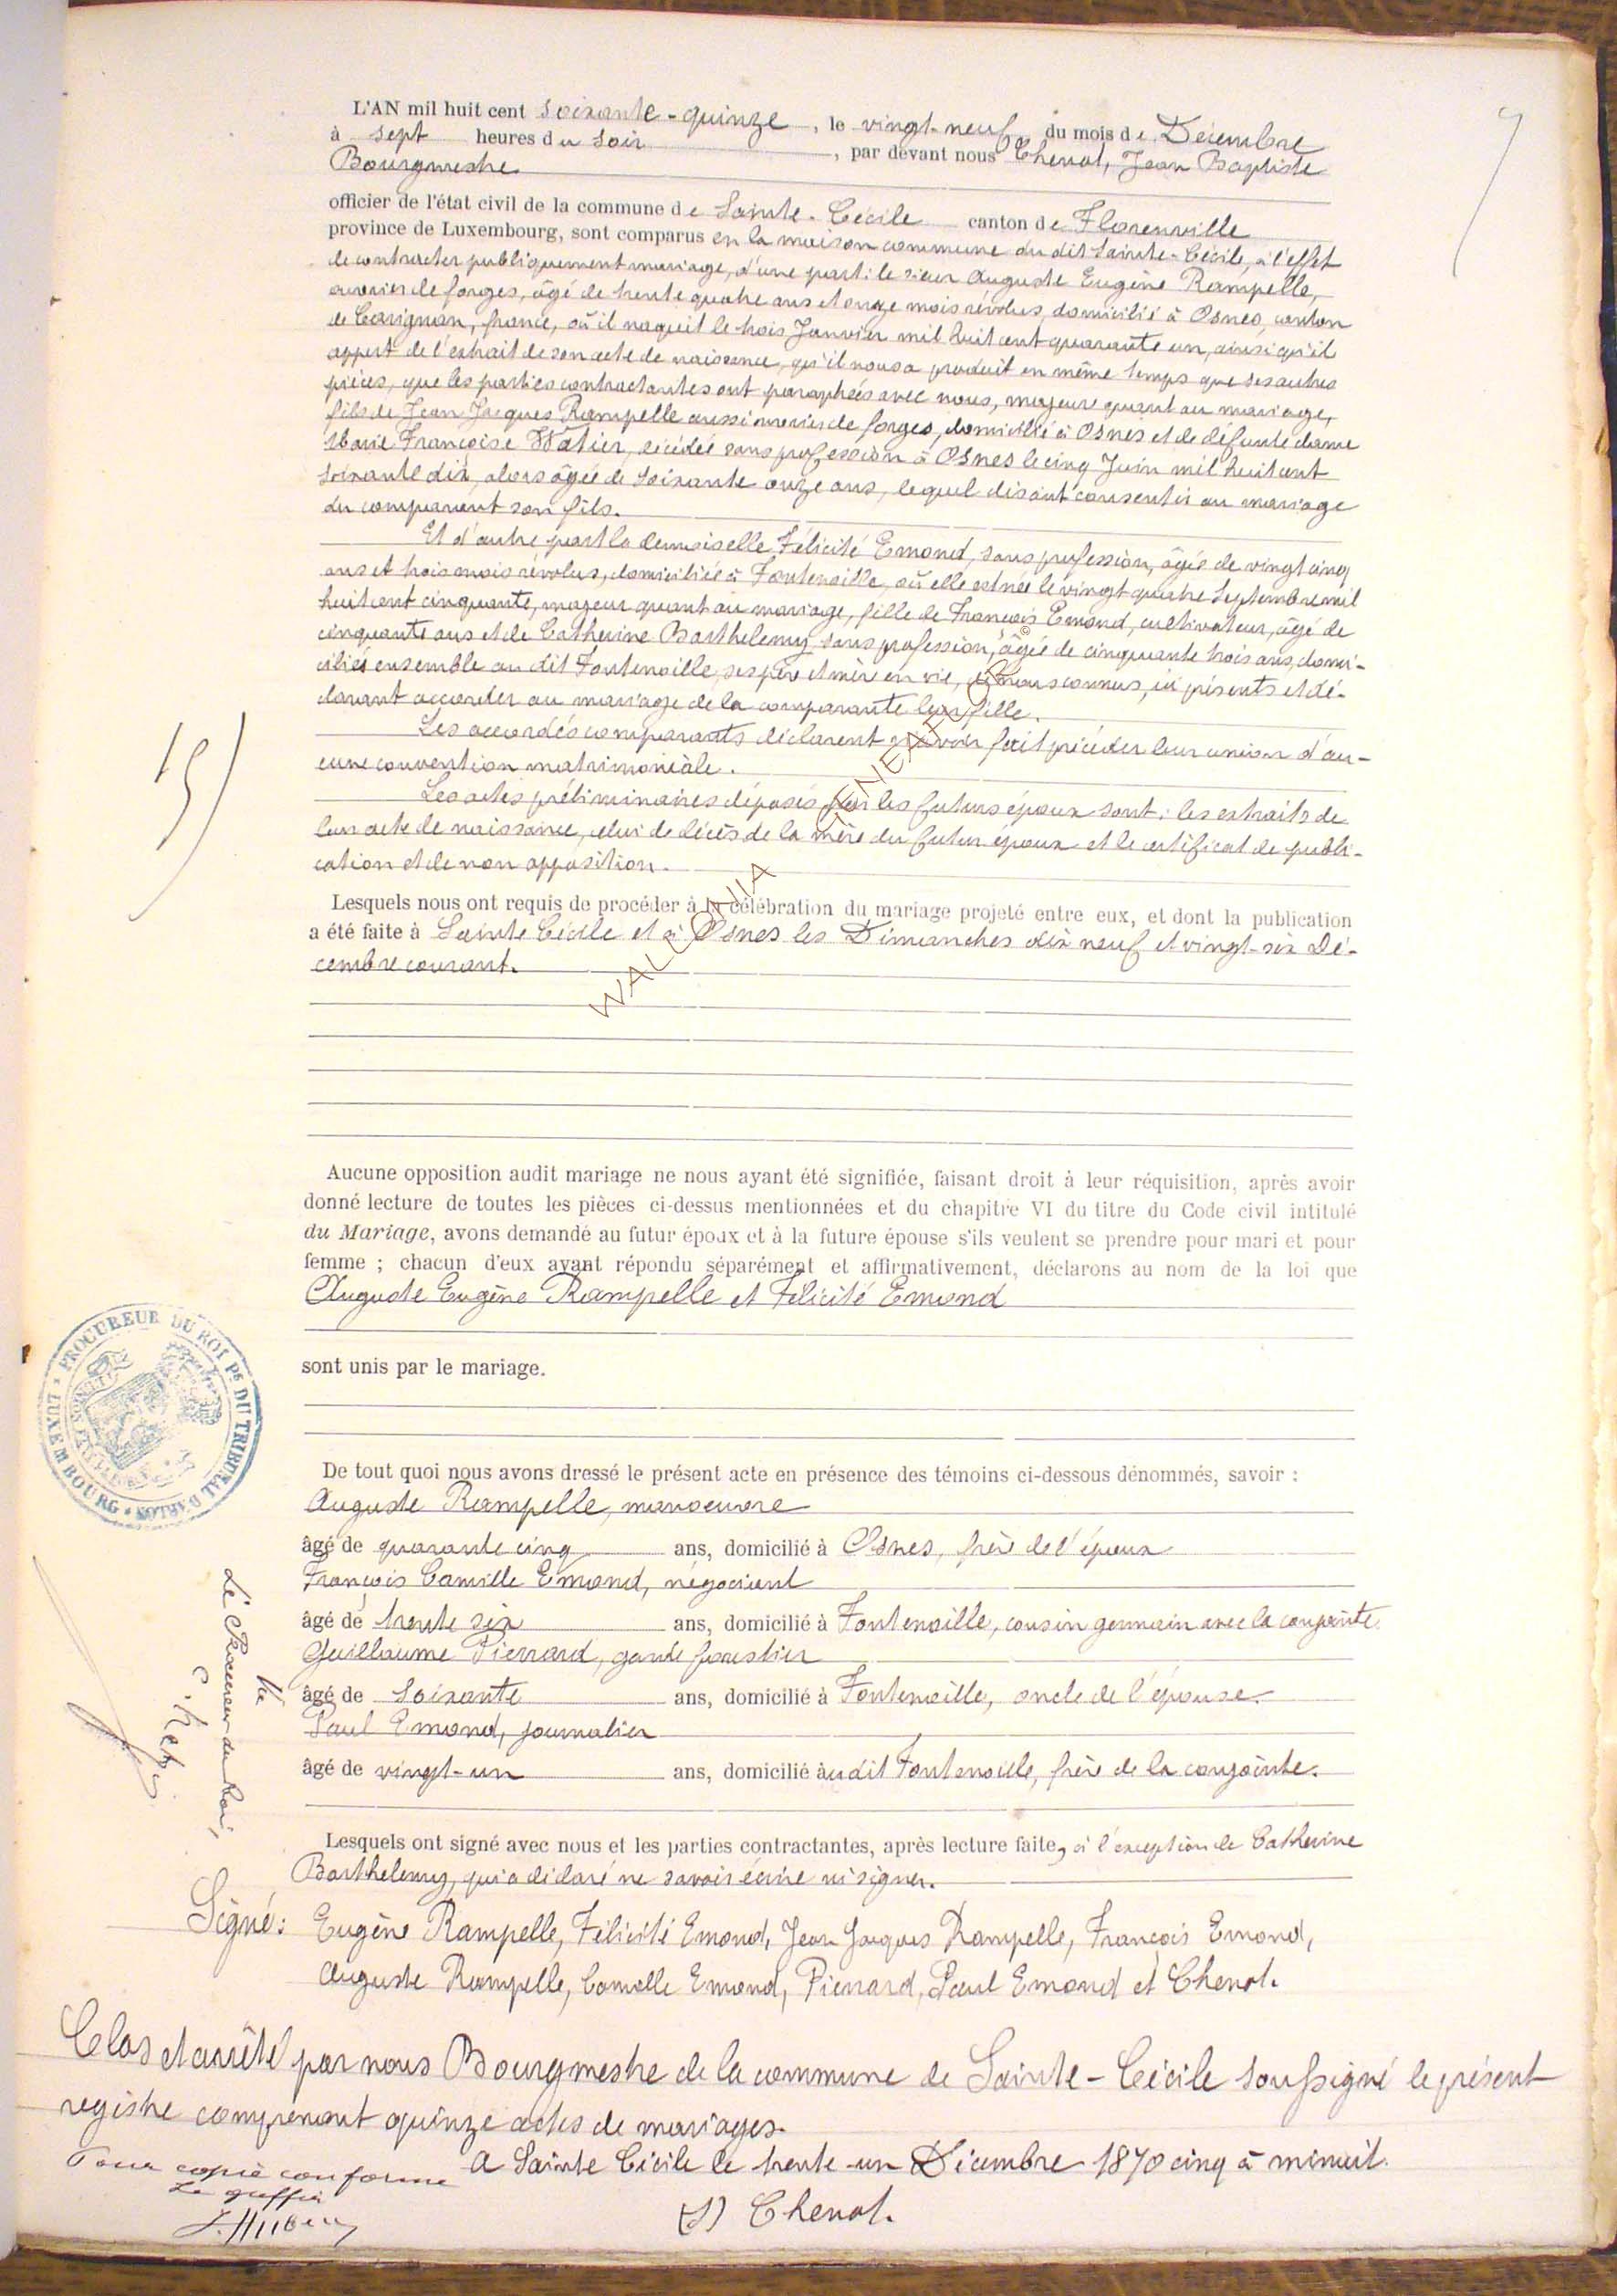 L'AN mil huit cent soixante-quinze, le vingt-neuf du mois de Décembre
à sept heures du soir, par devant nous Chenot, Jean Baptiste
Bourgmestre
officier de l'état civil de la commune de Sainte-Cécile canton de Florenville
province de Luxembourg, sont comparus en la maison commune du dit Sainte-Cécile, à l'effet
de contracter publiquement mariage, d'une part: le sieur Auguste Eugène Rampelle,
ouvrier de forges, âgé de trente quatre ans et onze mois révolus, domicilié à Osnes, canton
de Carignan, france, où il naquit le trois Janvier mil huit cent quarante un, ainsi qu'il
appert de l'extrait de son acte de naissance, qu'il nous a produit en même temps que ses autres
pièces, que les parties contractantes ont paraphées avec nous, majeur quant au mariage,
fils de Jean Jacques Rampelle aussi ouvrier de forges, domicilié à Osnes et de défunte dame
Marie Françoise Watier, décédée sans profession à Osnes le cinq Juin mil huit cent
soixante dix, alors âgée de soixante onze ans, lequel disant consentir au mariage
du comparant son fils.
Et d'autre part la demoiselle Félicité Emond, sans profession, âgée de vingt cinq
ans et trois mois révolus, domiciliée à Fontenoille, où elle est née le vingt quatre Septembre mil
huit cent cinquante, majeur quant au mariage, fille de François Emond, cultivateur, âgé de
cinquante ans et de Catherine Barthelemy, sans profession, âgée de cinquante trois ans, domi-
ciliés ensemble au dit Fontenoille, ses père et mère en vie, de nous connus, ici présents et dé-
clarant accorder au mariage de la comparante leur fille.
Les accordés comparants déclarent n'avoir fait précéder leur union d'au-
cune convention matrimoniale.
15
Les actes préliminaires déposés par les futurs époux sont: les extraits de
leur acte de naissance, celui de décès de la mère du futur époux et le certificat de publi-
cation et de non opposition.
Lesquels nous ont requis de procéder à la célébration du mariage projeté entre eux, et dont la publication
a été faite à Sainte Cécile et à Osnes les Dimanches dix neuf et vingt-six Dé-
cembre courant.
WALLONIA
Aucune opposition audit mariage ne nous ayant été signifiée, faisant droit à leur réquisition, après avoir
donné lecture de toutes les pièces ci-dessus mentionnées et du chapitre VI du titre du Code civil intitulé
du Mariage, avons demandé au futur époux et à la future épouse s'ils veulent se prendre pour mari et pour
femme ; chacun d'eux ayant répondu séparément et affirmativement, déclarons au nom de la loi que
Auguste Eugène Rampelle et Félicité Emond
sont unis par le mariage.
PROCUREUR DU ROI PS DU TRIBUNAL D'ARLON * LUXEMBOURG *
De tout quoi nous avons dressé le présent acte en présence des témoins ci-dessous dénommés, savoir :
Auguste Rampelle, manoeuvre
âgé de quarante cinq ans, domicilié à Osnes, frère de l'époux
François Camille Emond, négociant
âgé de trente six ans, domicilié à Fontenoille, cousin germain avec la conjointe
Guillaume Pierrard, garde forestier
âgé de soixante ans, domicilié à Fontenoille, oncle de l'épouse.
Paul Emond, journalier
âgé de vingt-un ans, domicilié audit Fontenoille, frère de la conjointe.
Vu
Le Procureur du Roi,
Lesquels ont signé avec nous et les parties contractantes, après lecture faite, à l'exception de Catherine
Barthelemy, qui a déclaré ne savoir écrire ni signer.
Signé: Eugène Rampelle, Félicité Emond, Jean Jacques Rampelle, François Emond,
Auguste Rampelle, Camille Emond, Pierrard, Paul Emond et Chenot.
Clos et arrêté par nous Bourgmestre de la commune de Sainte-Cécile soussigné le présent
registre comprenant quinze actes de mariages.
A Sainte Cécile le trente-un Décembre 1870 cinq à minuit.
Pour copie conforme
Le greffier
(S) Chenot.